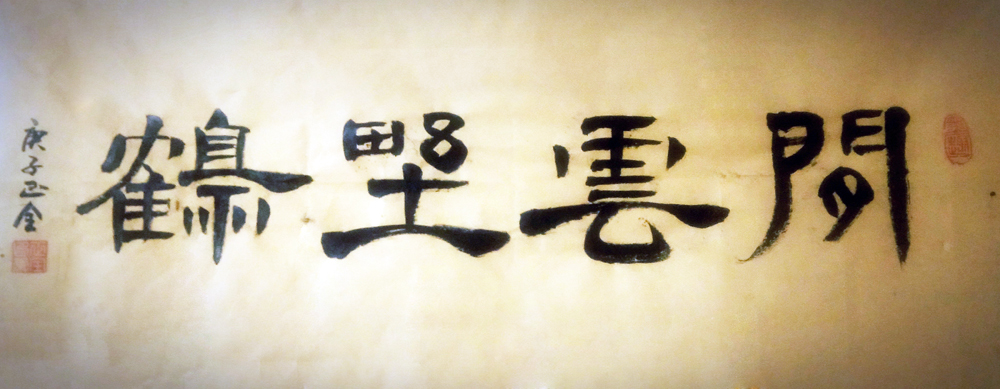 閒雲野鶴
庚子正全